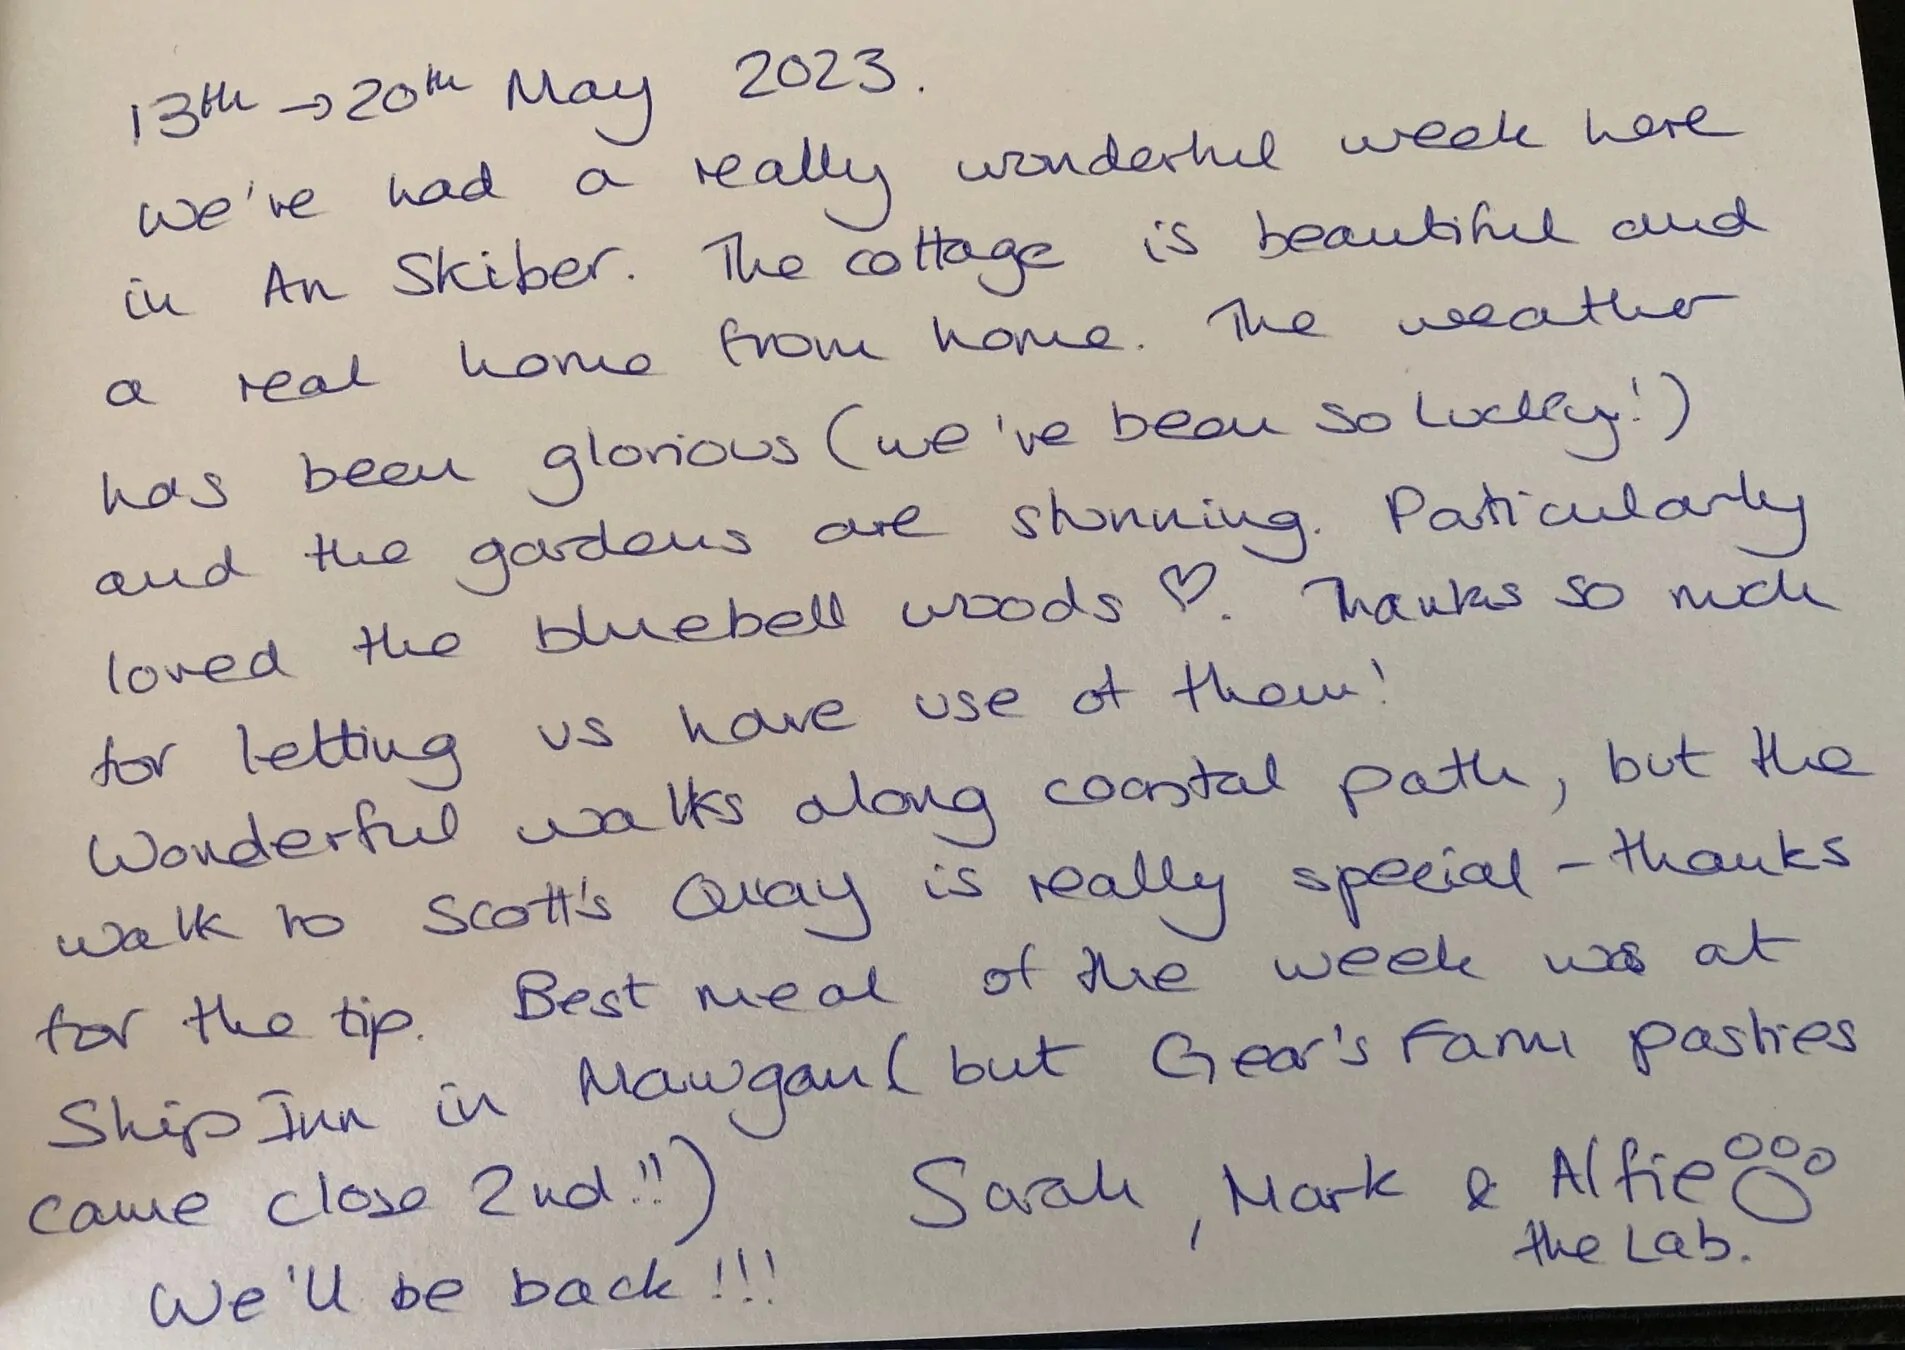 13th → 20th May 2023.
We've had a really wonderful week here
in An Skiber. The cottage is beautiful and
a real home from home. The weather
has been glorious (we've been so lucky!)
and the gardens are stunning. Particularly
loved the bluebell woods ♡. Thanks so much
for letting us have use of them!
Wonderful walks along coastal path, but the
walk to Scott's Quay is really special - thanks
for the tip. Best meal of the week was at
Ship Inn in Mawgan (but Gear's Farm pasties
came close 2nd!!) Sarah, Mark & Alfie
the Lab.
We'll be back!!!